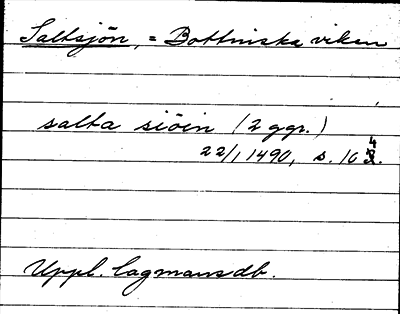 Saltsjön, = Bottniska viken
salta siöin (2 ggr.)
22/1 1490, s. 10
Uppl. lagmansdb.